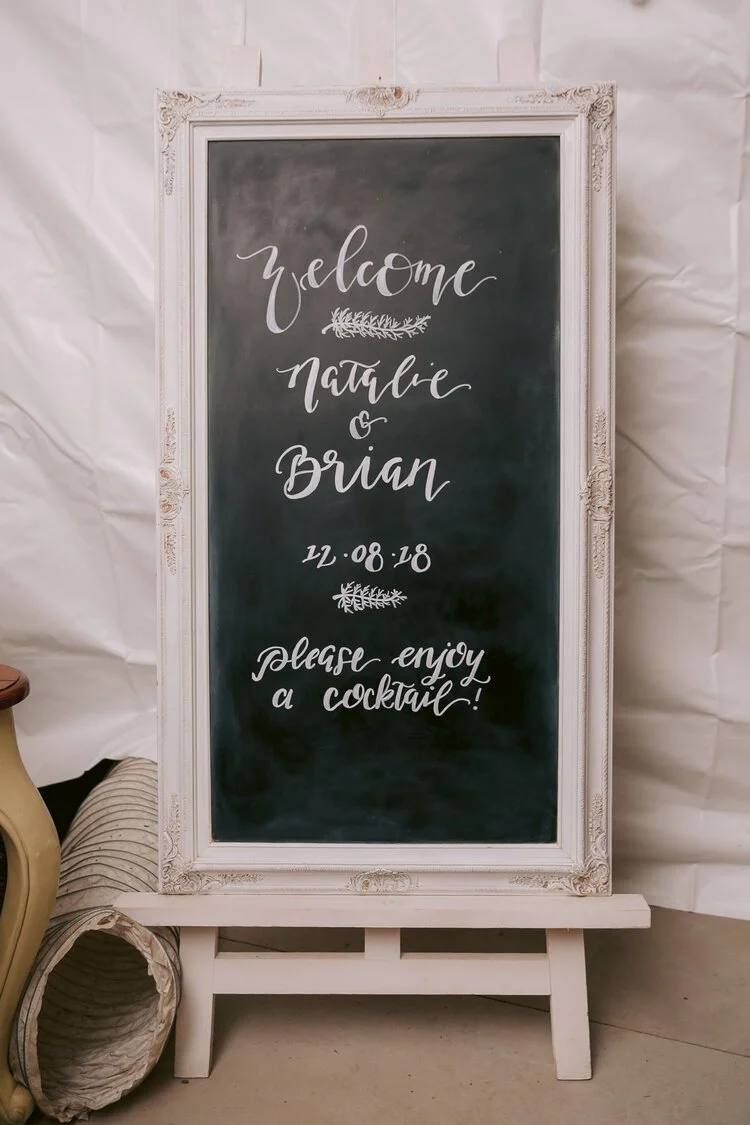 Welcome
Natalie
&
Brian
12·08·18
please enjoy
a cocktail!